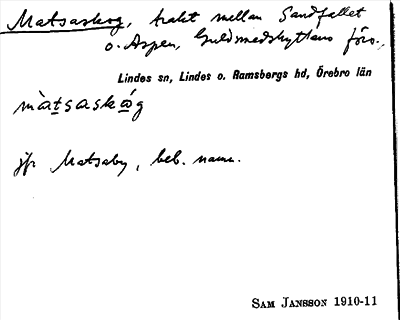 Matsaskog, trakt mellan Sandfallet
o. Aspen, Guldsmedshyttans förs.,
Lindes sn, Lindes o. Ramsbergs hd, Örebro län
màtsaskóg
jfr Matsaby, beb. namn.
SAM JANSSON 1910-11